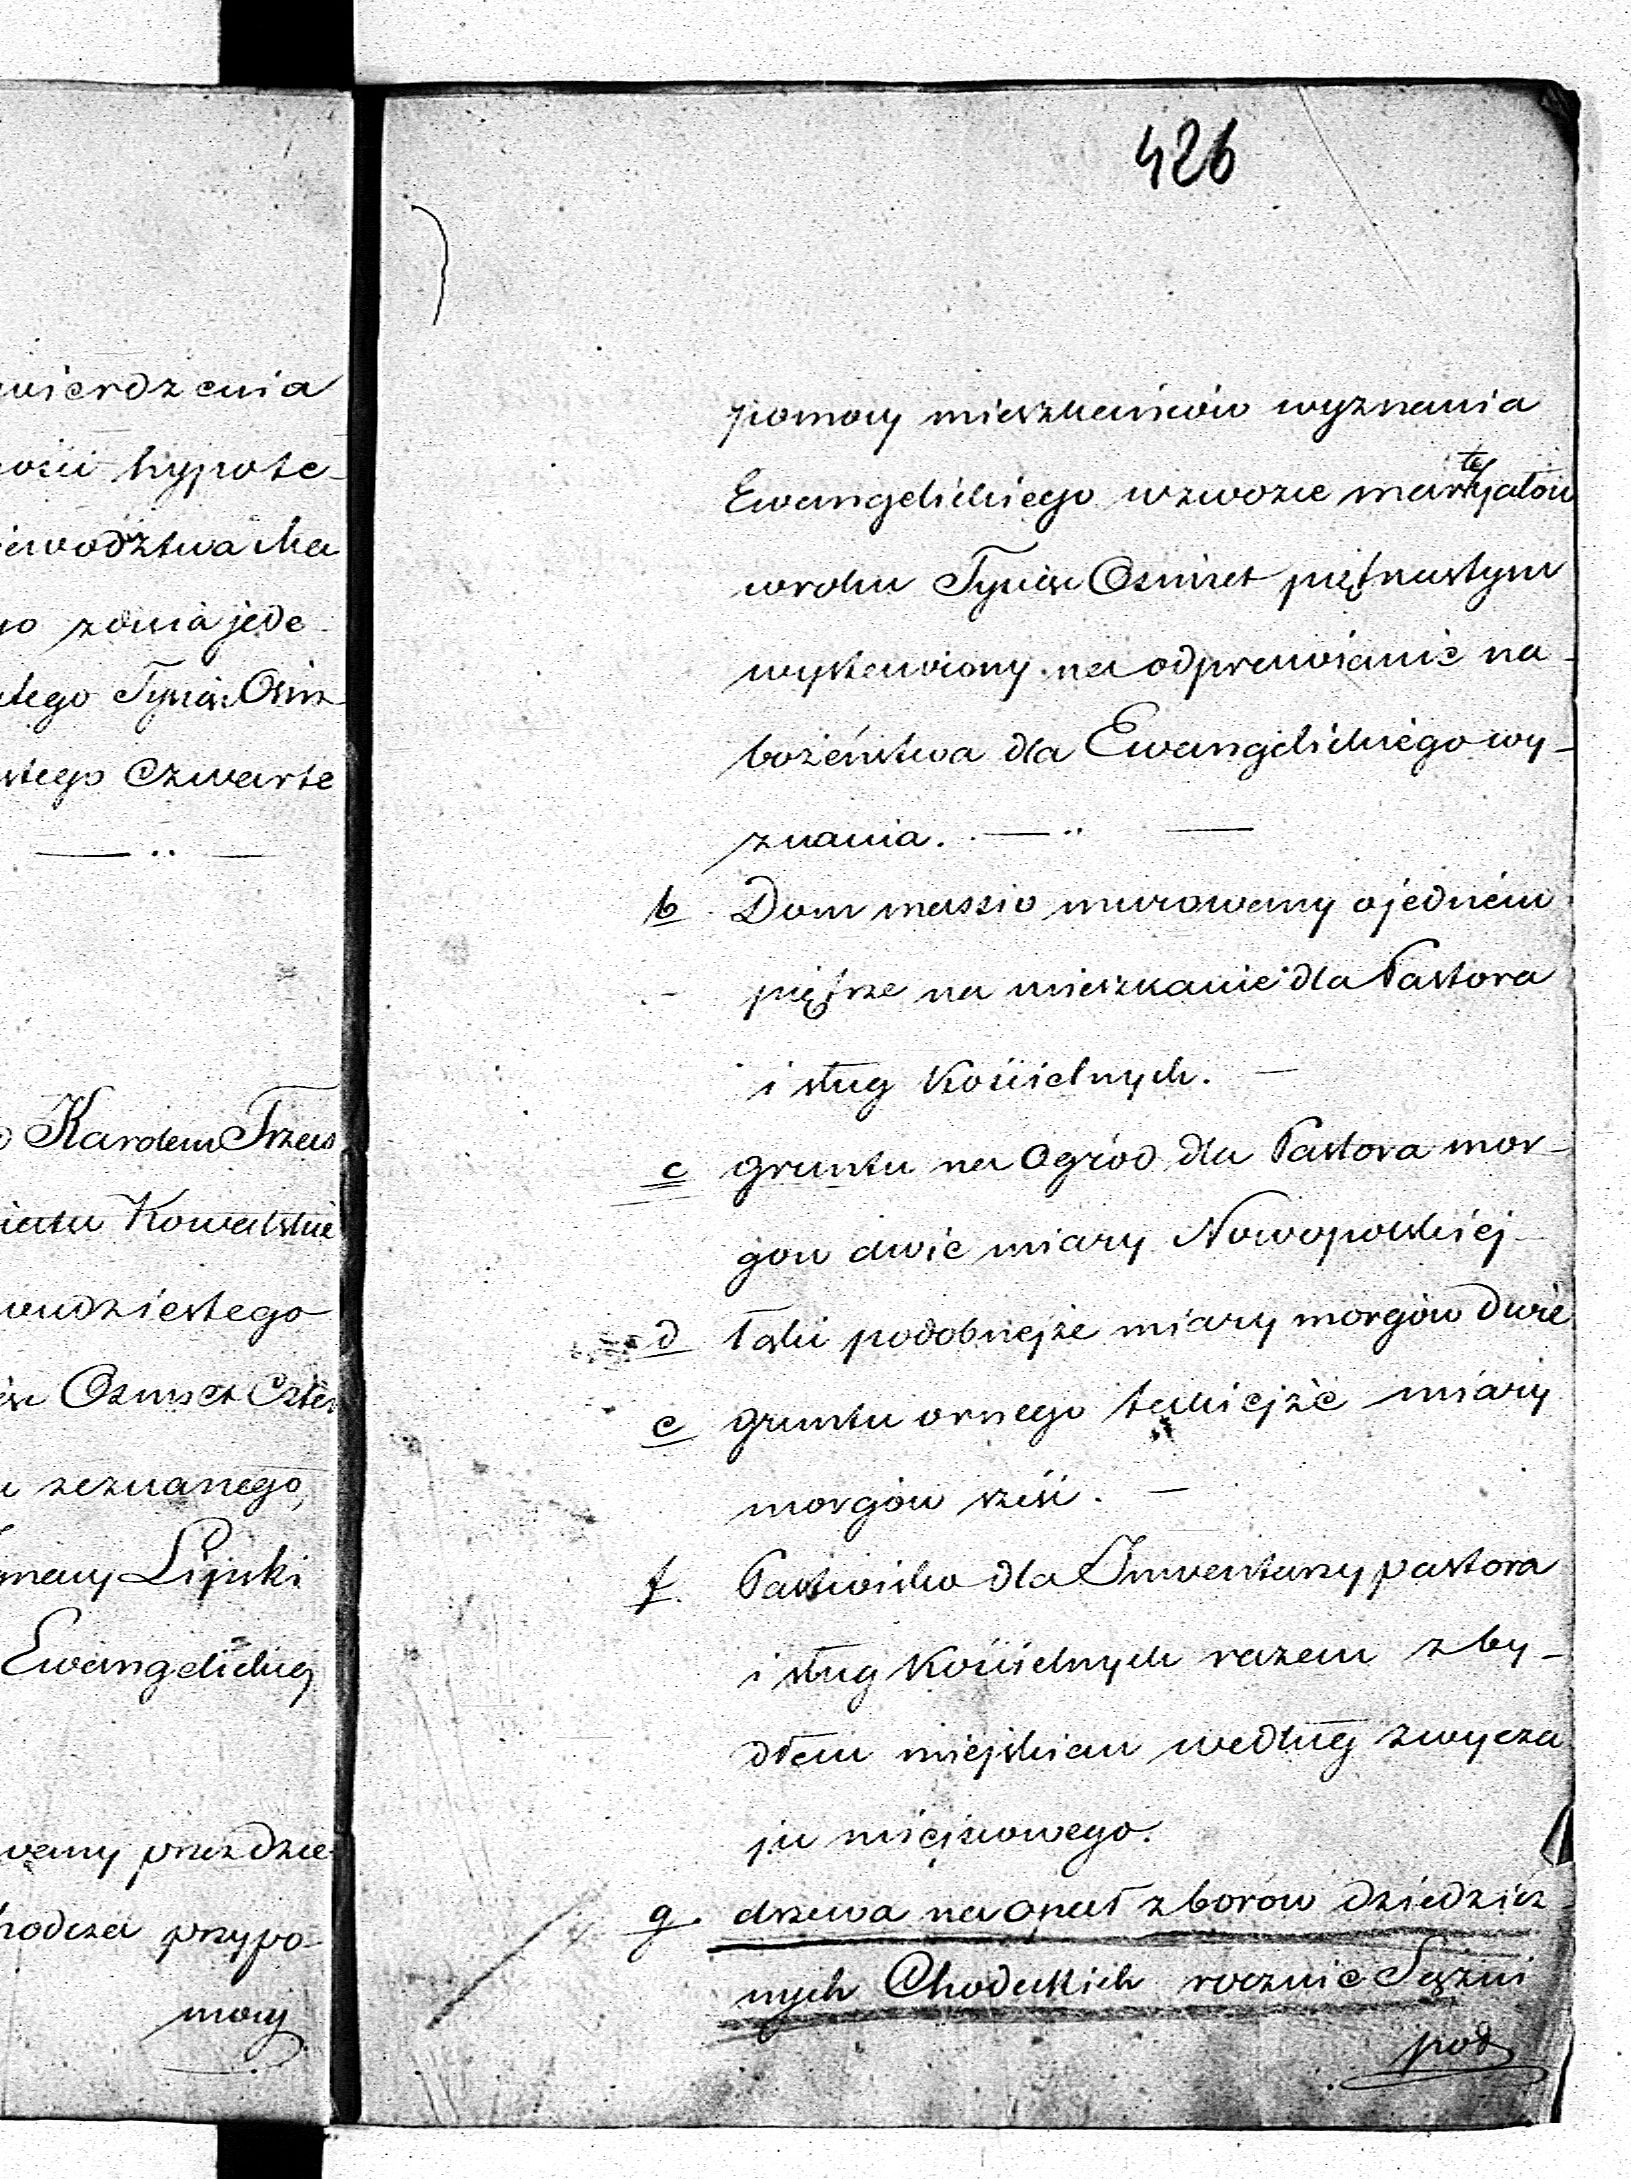 wierdzenia
ości hypote-
iewodztwa Ma
go z dnia jede
utego Tysiąc Ośm
stego Czwarte
Karolem Trzas
iatu Kowalskie
wudziestego
Osmset Czter
zeznanego,
Lipski
Ewangelicką
wany przez dzie-
hodcza przypo-
mocy
426
pomocy mieszkańców wyznania
Ewangelickiego wzwozie materyałów
wroku Tysiąc Osmset piętnastym
wystawiony na odprawianie na-
bożeństwa dla Ewangelickiego wy-
znania.
b Dom massiv murowany o jedném
piętrze na mieszkanie dla Pastora
i sług Kościelnych.
c gruntu na Ogród dla Pastora mor-
gów dwie miary Nowopolskiej
d Łąki podobnejże miary morgów dwie
e gruntu ornego takiejże miary
morgów sześć.
f. Pastwisko dla Inwentarzy pastora
i sług Kościelnych razem z by-
dłem miejskiem według zwycza
ju miejscowego.
g. drzewa na opał z borów dziedzicz-
nych Chodeckich rocznie Sążni
pod